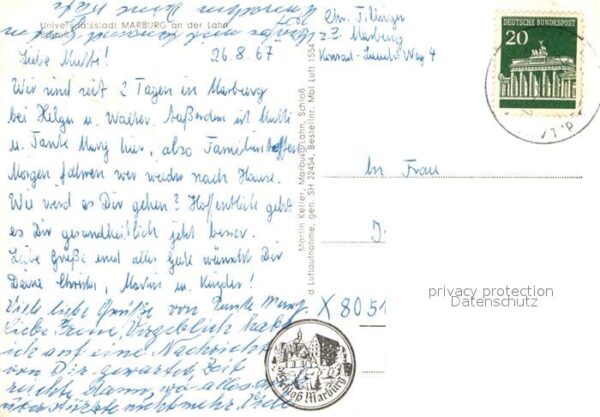 Universitätsstadt MARBURG an der Lahn
Schloß
26.8.67
Liebe Mutti!
Wir sind seit 2 Tagen in Marburg
bei Helga u. Walter. Außerdem ist Mutti
u. Tante Mary hier, also Familientreffen
Morgen fahren wir wieder nach Hause.
Wie wird es Dir gehen? Hoffentlich geht
es Dir gesundheitlich jetzt besser.
Liebe Grüße und alles Gute wünscht Dir
Deine Christa, Martin u. Kinder!
Viele liebe Grüße von Tante Mary
Liebe Vergeblich habe
ich auf eine Nachricht
von Dir gewartet, Zeit
reichte dann, wo alles
nicht mehr. Viele
Martin Keller, Marburg/Lahn, Schloß
d Luftaufnahme, gen. SH 22454, Bestellnr. Mbl Luft 1554
Chr. Fillinger
z.Z. Marburg
Konrad- Weg 4
DEUTSCHE BUNDESPOST
20
An Frau
X 8051
privacy protection
Datenschutz
Schloß Marburg